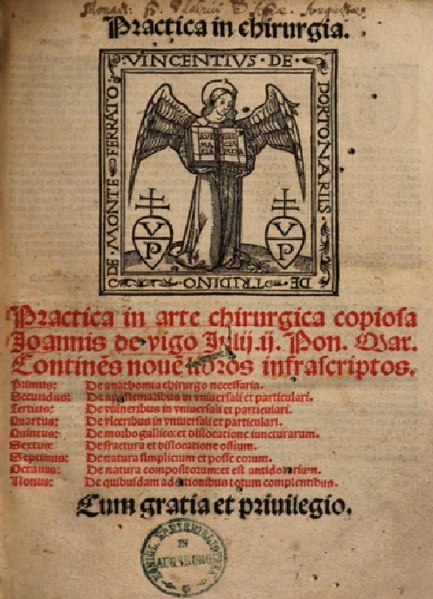 Practica in chirurgia.
VINCENTIVS · DE ·
PORTONARIIS ·
DE · TRIDINO
DE · MONTE · FERRATO
AVE MA RIA GRA CIA PLENA
V P
V P
Practica in arte chirurgica copiosa
Joannis de vigo Julij .ij. Pon. Mar.
Continẽs nouẽ libros infrascriptos.
Primus: De anathomia chirurgo necessaria.
Secundus: De apostematibus in vniuersali et particulari.
Tertius: De vulneribus in vniuersali et particulari.
Quartus: De vlceribus in vniuersali et particulari.
Quintus: De morbo gallico: et dislocatione iuncturarum.
Sextus: De fractura et dislocatione ossium.
Septimus: De natura simplicium et posse eorum.
Octauus: De natura compositorum: et est antidotarium.
Nonus: De quibusdam additionibus totum complentibus.
Cum gratia et priuilegio.
IN
AUGSBURG